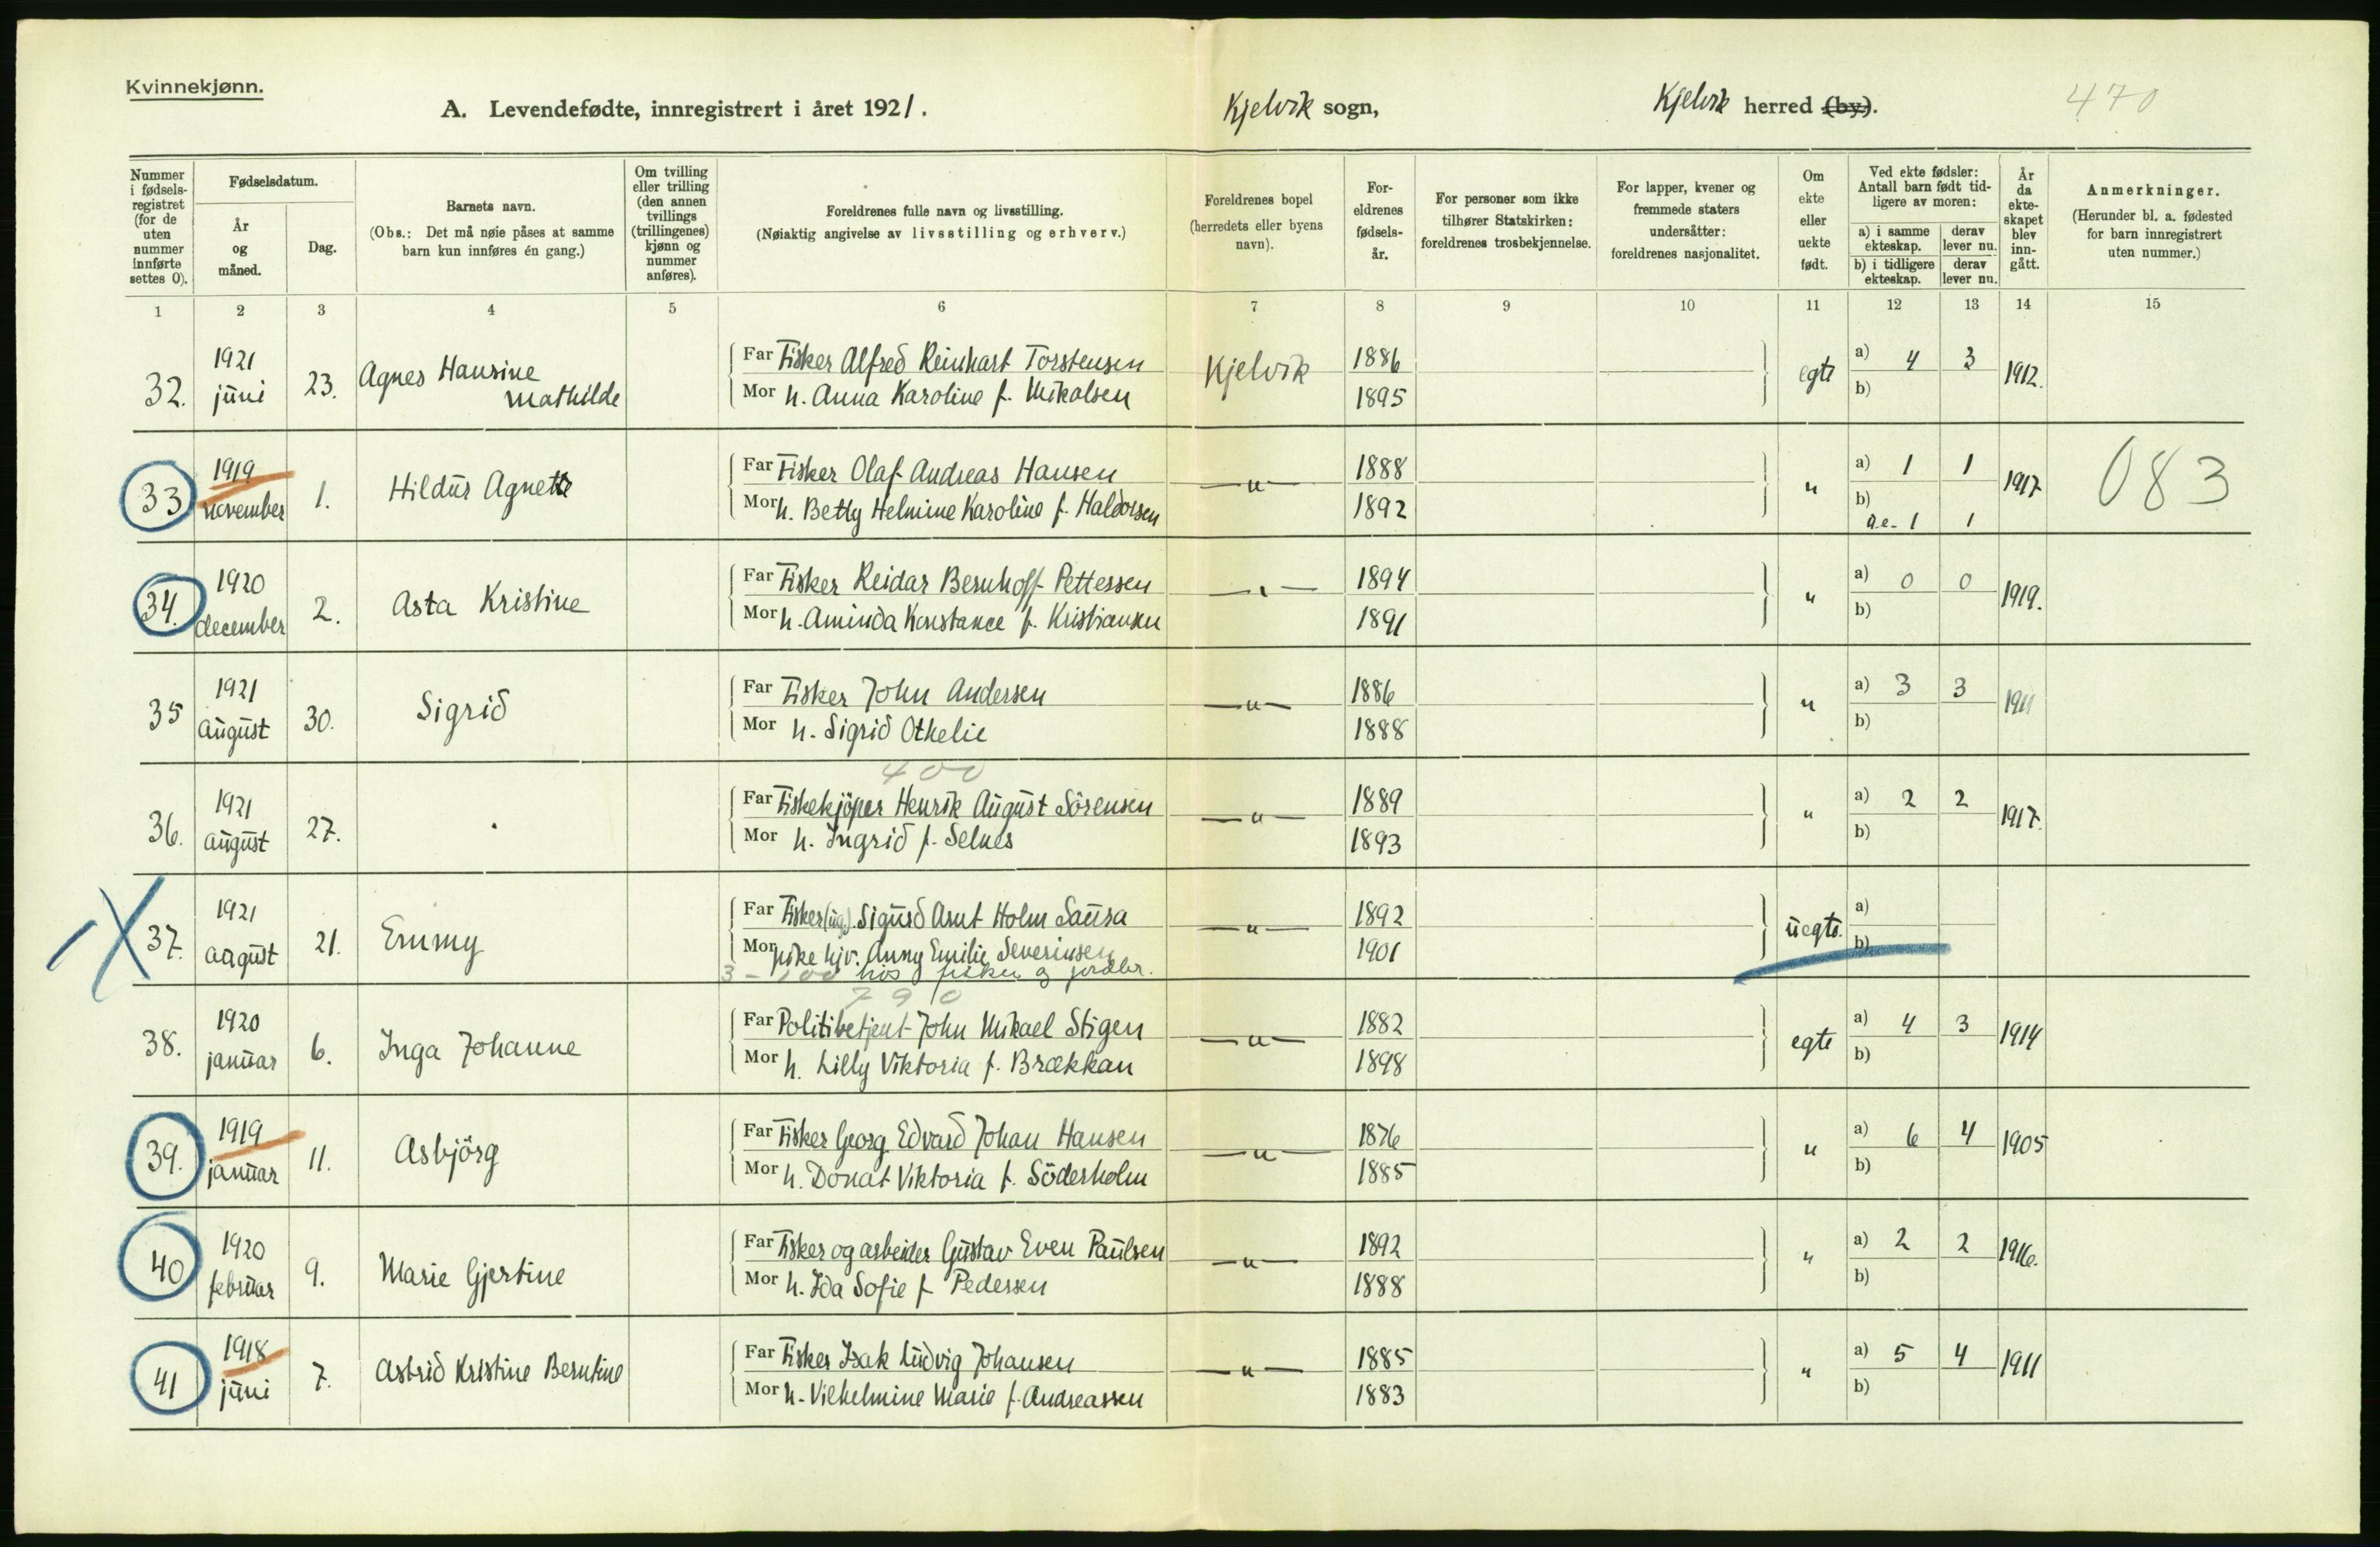 Kvinnekjønn.
A. Levendefødte, innregistrert i året 1921. Kjelvik sogn, Kjelvik herred (by). 470
Nummer i fødsels-registret (for de uten nummer innførte settes 0).
Fødselsdatum.
År og måned.
Dag.
Barnets navn.
(Obs.: Det må nøie påses at samme barn kun innføres én gang.)
Om tvilling eller trilling (den annen tvillings (trillingenes) kjønn og nummer anføres).
Foreldrenes fulle navn og livsstilling.
(Nøiaktig angivelse av livsstilling og erhverv.)
Foreldrenes bopel (herredets eller byens navn).
For-eldrenes fødsels-år.
For personer som ikke tilhører Statskirken: foreldrenes trosbekjennelse.
For lapper, kvener og fremmede staters undersåtter: foreldrenes nasjonalitet.
Om ekte eller uekte født.
Ved ekte fødsler: Antall barn født tid-ligere av moren:
a) i samme ekteskap. derav lever nu.
b) i tidligere ekteskap. derav lever nu.
År da ekte-skapet blev inn-gått.
Anmerkninger.
(Herunder bl. a. fødested for barn innregistrert uten nummer.)
1 2 3 4 5 6 7 8 9 10 11 12 13 14 15
32. 1921 juni 23. Agnes Hansine Mathilde Far Fisker Alfred Reinhart Torstensen Kjelvik 1886 egte a) 4 3 1912.
Mor h. Anna Karoline f. Mikalsen 1895 b)
33 1919 november 1. Hildur Agnete Far Fisker Olaf Andreas Hansen —"— 1888 " a) 1 1 1917 083
Mor h. Betty Helmine Karoline f. Haldorsen 1892 b)
a.e. 1 1
34. 1920 december 2. Asta Kristine Far Fisker Reidar Bernhoff Pettersen —"— 1894 " a) 0 0 1919.
Mor h. Aminda Konstance f. Kristiansen 1891 b)
35 1921 august 30. Sigrid Far Fisker John Andersen —"— 1886 " a) 3 3 1911
Mor h. Sigrid Othelie 1888 b)
400
36. 1921 august 27. Far Fiskekjöper Henrik August Sörensen —"— 1889 " a) 2 2 1917.
Mor h. Ingrid f. Selnes 1893 b)
37. 1921 august 21. Emmy Far Fisker (ug.) Sigurd Arnt Holm Saura —"— 1892 uegte. a)
Mor pike hjv. Anny Emilie Severinsen 1901 b)
hos fisker og jordbr.
790
38. 1920 januar 6. Inga Johanne Far Politibetjent John Mikael Stigen —"— 1882 egte a) 4 3 1914
Mor h. Lilly Viktoria f. Brækkan 1898 b)
39. 1919 januar 11. Asbjörg Far Fisker Georg Edvard Johan Hansen —"— 1876 " a) 6 4 1905
Mor h. Donat Viktoria f. Söderholm 1885 b)
40 1920 februar 9. Marie Gjertine Far Fisker og arbeider Gustav Even Paulsen —"— 1892 " a) 2 2 1916.
Mor h. Ida Sofie f. Pedersen 1888 b)
41 1918 juni 7. Astrid Kristine Berntine Far Fisker Isak Ludvig Johansen —"— 1885 " a) 5 4 1911
Mor h. Vilhelmine Marie f. Andreassen 1883 b)